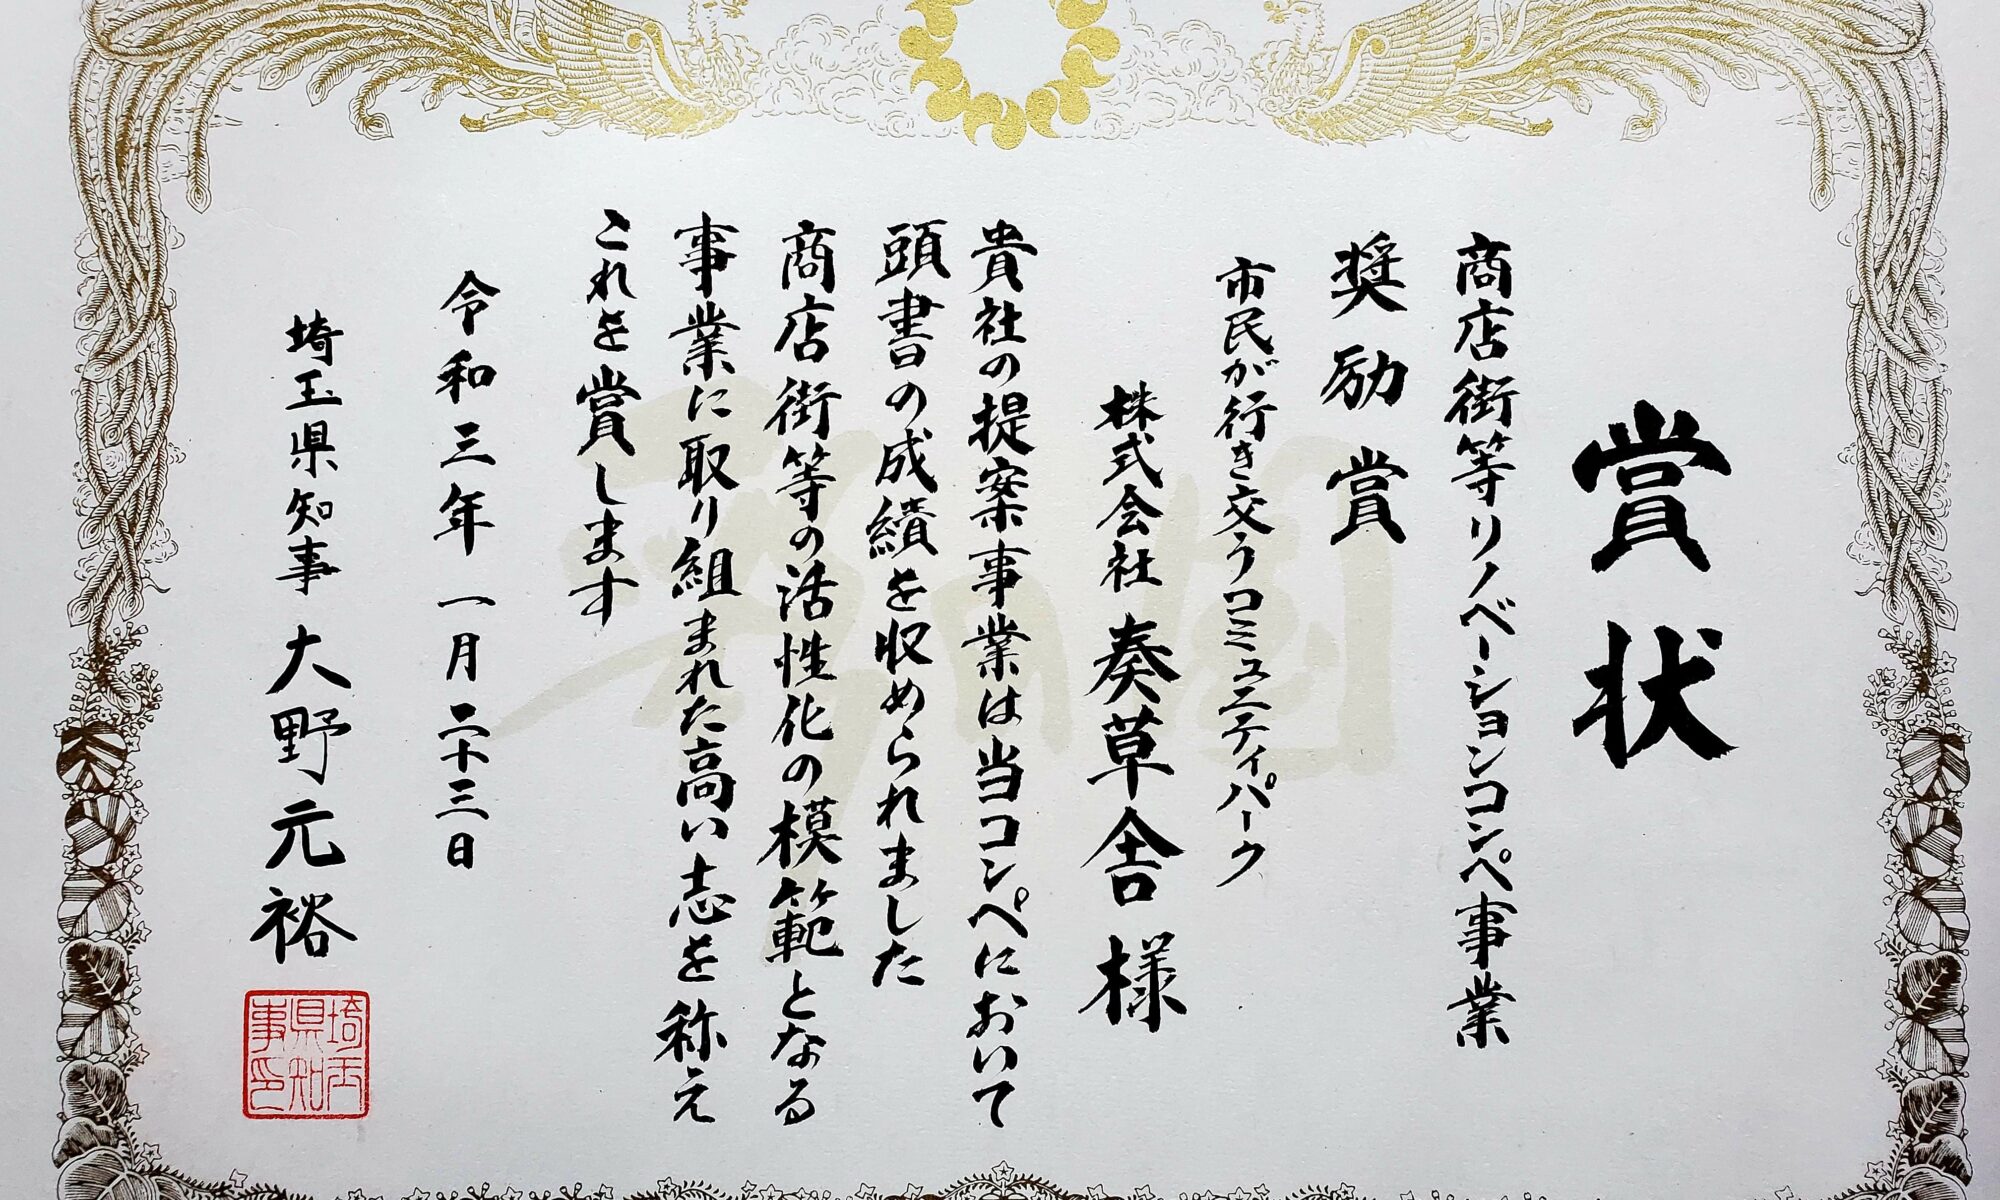 賞状
商店街等リノベーションコンペ事業
奨励賞
市民が行き交うコミュニティパーク
株式会社 奏草舎 様
貴社の提案事業は当コンペにおいて
頭書の成績を収められました
商店街等の活性化の模範となる
事業に取り組まれた高い志を称え
これを賞します
令和三年一月二十三日
埼玉県知事 大野元裕
埼玉県知事印